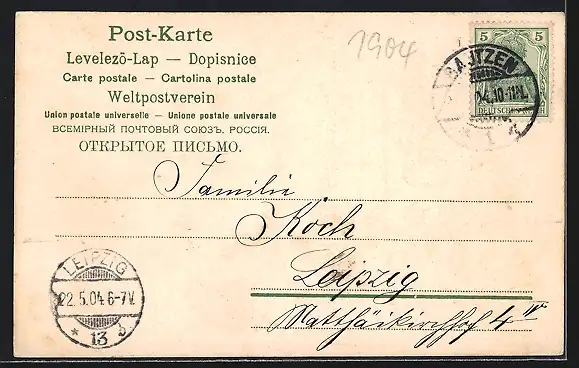 Post-Karte
Levelezö-Lap — Dopisnice
Carte postale — Cartolina postale
Weltpostverein
Union postale universelle — Unione postale universale
ВСЕМІРНЫЙ ПОЧТОВЫЙ СОЮЗЪ. РОССІЯ.
ОТКРЫТОЕ ПИСЬМО.
1904
5 5
BAUTZEN
DEUTSCHES REICH
Familie
Koch
Leipzig
Matthäikirchhof 4 III
LEIPZIG
22.5.04.6-7V.
* 13